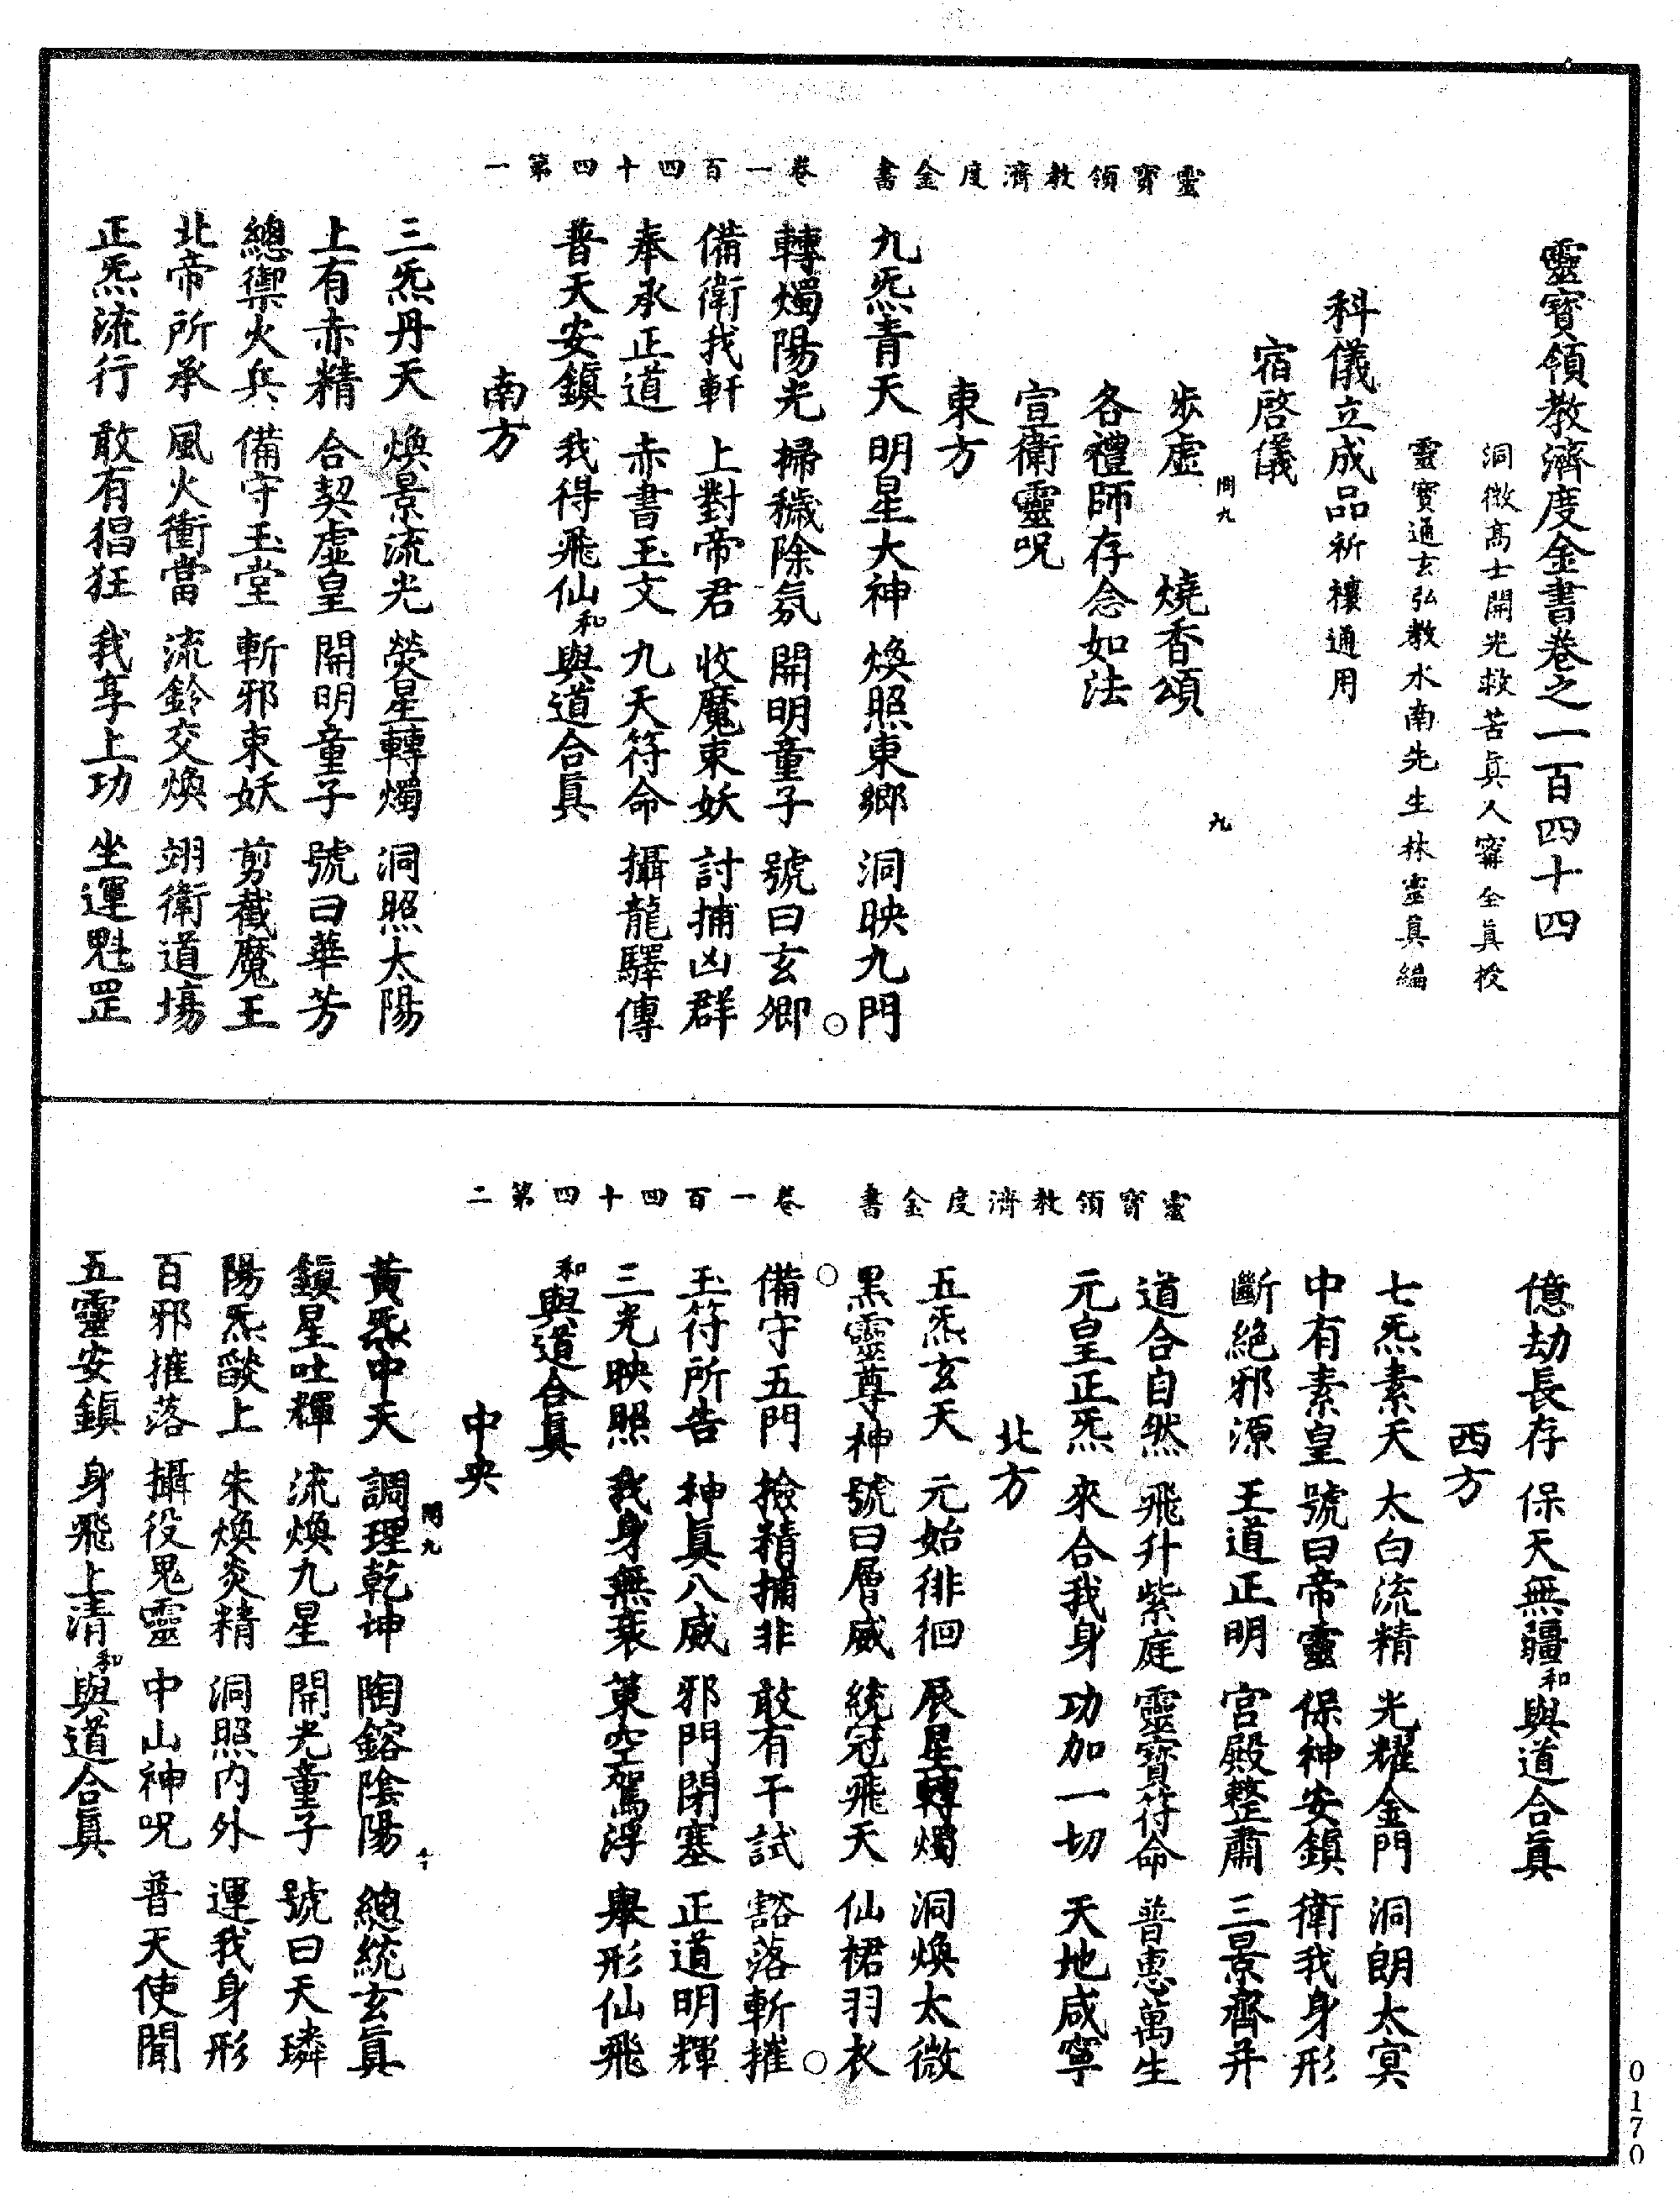 靈寶領教濟度金書卷之一百四十四
洞微高士開光救苦眞人寗全眞授
靈寶通玄弘教水南先生林靈眞編
科儀立成品祈禳通用
宿啓儀
步虛　燒香頌
各禮師存念如法
宣衛靈呪
東方
九炁青天　明星大神　煥照東鄉　洞映九門
轉燭陽光　掃穢除氛　開明童子　號曰玄卿
備衛我軒　上對帝君　收魔束妖　討捕凶群
奉承正道　赤書玉文　九天符命　攝龍驛傳
普天安鎮　我得飛仙　和與道合眞
南方
三炁丹天　煥景流光　熒星轉燭　洞照太陽
上有赤精　合契虛皇　開明童子　號曰華芳
總禦火兵　備守玉堂　斬邪束妖　剪截魔王
北帝所承　風火衝當　流鈴交煥　翊衛道場
正炁流行　敢有猖狂　我享上功　坐運魁罡
靈寶領教濟度金書　卷一百四十四第一
問九
九
億劫長存　保天無疆　和與道合眞
西方
七炁素天　太白流精　光耀金門　洞朗太冥
中有素皇　號曰帝靈　保神安鎮　衛我身形
斷絕邪源　王道正明　宮殿整肅　三景齊并
道合自然　飛升紫庭　靈寶符命　普惠萬生
元皇正炁　來合我身　功加一切　天地咸寧
北方
五炁玄天　元始徘徊　辰星轉燭　洞煥太微
黑靈尊神　號曰層威　統冠飛天　仙裙羽衣
備守五門　撿精捕非　敢有干試　豁落斬摧
玉符所告　神眞八威　邪門閉塞　正道明輝
三光映照　我身無衰　策空駕浮　舉形仙飛
和與道合眞
中央
黃炁中天　調理乾坤　陶鎔陰陽　總統玄眞
鎮星吐輝　流煥九星　開光童子　號曰天璘
陽炁燄上　朱煥炎精　洞照內外　運我身形
百邪摧落　攝役鬼靈　中山神呪　普天使聞
五靈安鎮　身飛上清　和與道合眞
靈寶領教濟度金書　卷一百四十四第二
問九
十
0170